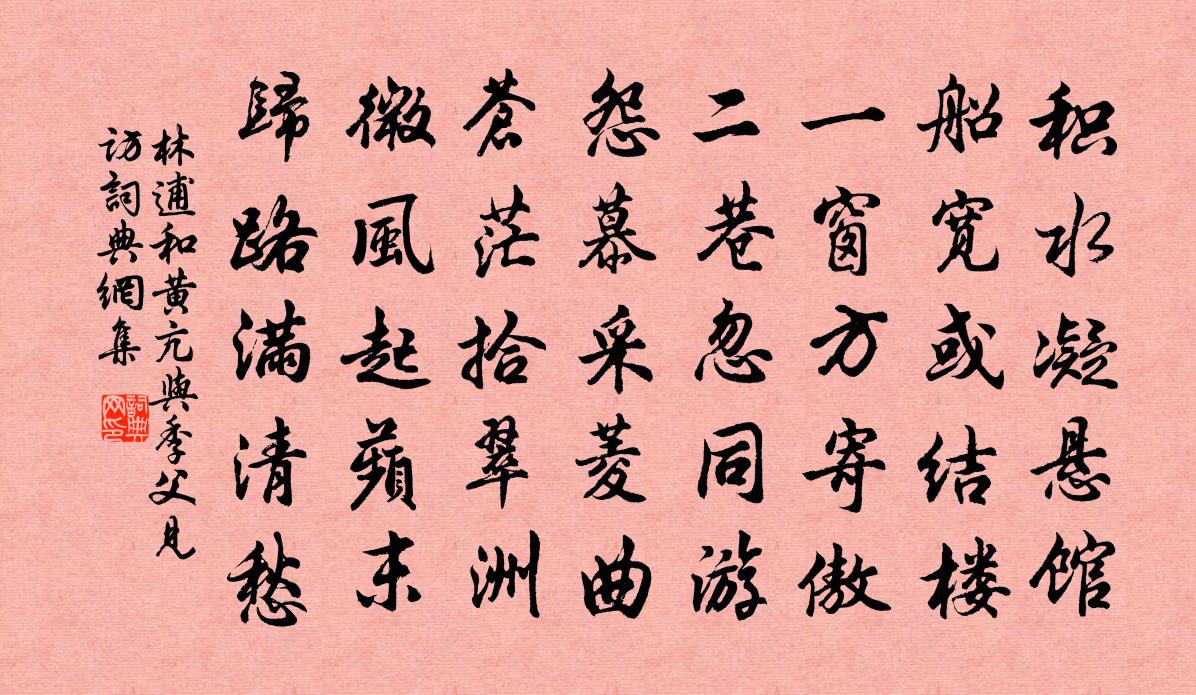 积水凝悬馆
船宽或结楼
一窗方寄傲
二巷忽同游
怨慕采菱曲
苍茫拾翠洲
微風起蘋末
歸路满清愁
林逋和黄亢與季父見
访詞典網集
詞典
网印